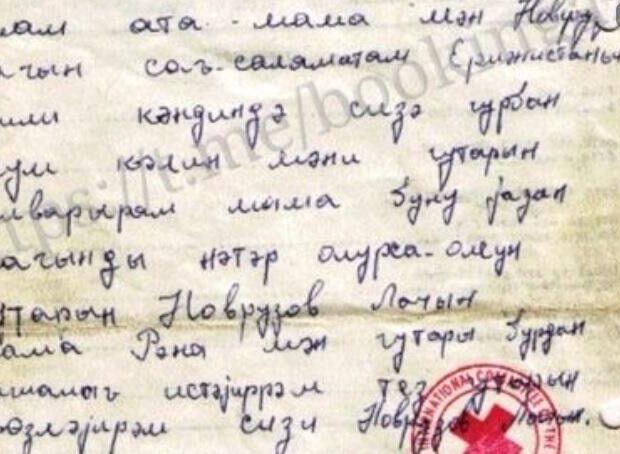 лам ата-мама мән Новруз
ачын сағ-саламатам Ермәнистанын
или кәндиндә сизә гурбан
ум кәлин мәни гутарын
лварырам мама буну јазан
ачынды нәтәр олурса-олсун
утарын Новрузов Лачын
ама Рәна мән гутары бурдан
шамағ истәјиррәм тез гутарын
өзләјирәм сизи Новрузов Лачын.
https://t.me/booking
INTERNATIONAL COMMITTEE THE